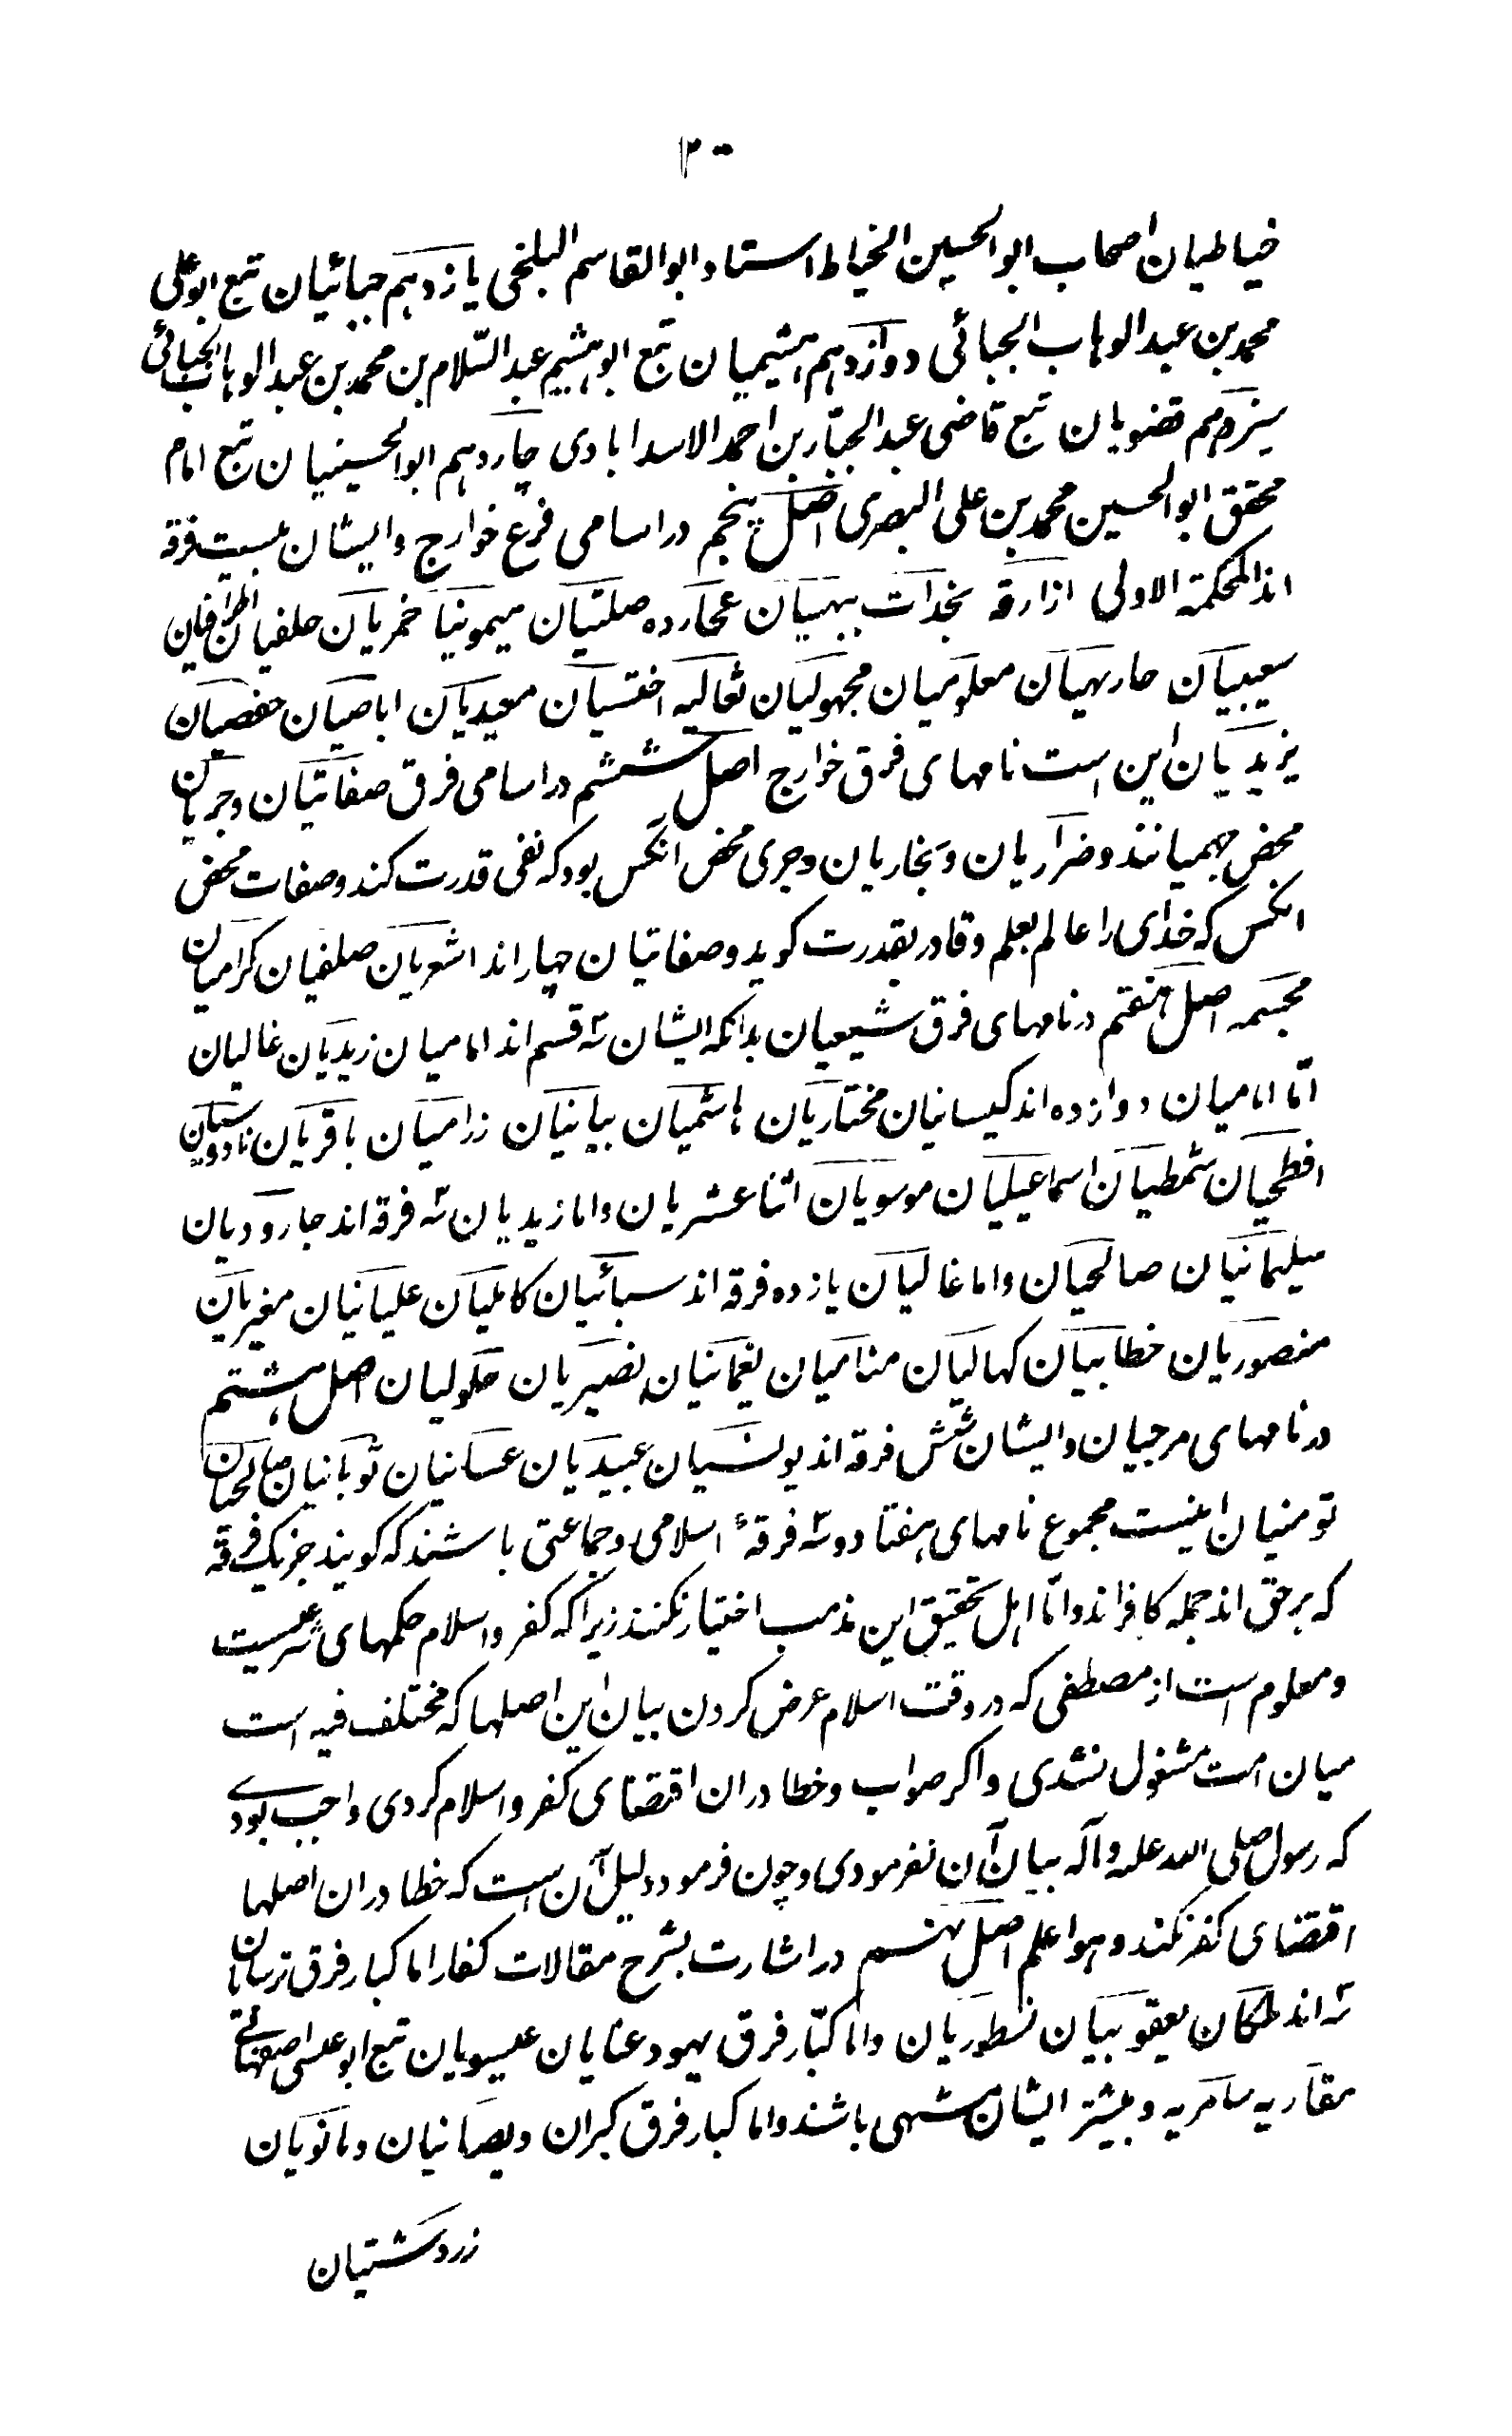 ۳۰
خیاطیان اصحاب ابوالحسین الخیاط استاد ابوالقاسم البلخی یازدهم جبائیان تبع ابوعلی
محمد بن عبد الوهاب الجبائی دوازدهم هشیمیان تبع ابوهشیم عبد السّلام بن محمد بن عبد الوهاب الجبائی
سیزدهم قضویان تبع قاضی عبد الجبّار بن احمد الاسدابادی چاردهم ابوالحسینیان تبع امام
محقق ابوالحسین محمد بن علی البصری اصل پنجم در اسامی فرع خوارج و ایشان بیست فرقه
اند المحکمة الاولی ازارقه نجدات بیهسیان عجارده صلتیان میمونیا خمریان خلفیان اطرافیان
سعیبیان حازمیان معلومیان مجهولیان ثعالبه اخنسیان معیدیان اباضیان حفصیان
یزیدیان این است نامهای فرق خوارج اصل ششم در اسامی فرق صفاتیان و جبریان
محض جهمیانند و ضراریان و نجاریان و جبری محض آنکس بود که نفی قدرت کند و صفات محض
انکس که خدای را عالم بعلم و قادر بقدرت کوید و صفاتیان چهار اند اشعریان صلفیان کرامیان
مجسمه اصل هفتم در نامهای فرق شیعیان بدانکه ایشان سه قسم اند امامیان زیدیان غالیان
امّا امامیان دوازده اند کیسانیان مختاریان هاشمیان بیانیان رزامیان باقریان ناووسیان
افطحیان شمطیان اسماعیلیان موسویان اثنا عشریان و اما زیدیان سه فرقه اند جارودیان
سلیمانیان صالحیان و اما غالیان یازده فرقه اند سبائیان کاملیان علیانیان مغیریان
منصوریان خطابیان کهالیان منامیان نعمانیان نصیریان حلولیان اصل هشتم
در نامهای مرجیان و ایشان شش فرقه اند یونسیان عبیدیان عسانیان ثوبانیان صالحیان
تومنیان اینست مجموع نامهای هفتاد و سه فرقهٔ اسلامی و جماعتی باشند که کویند جز یک فرقه
که بر حق اند جمله کافراند و امّا اهل تحقیق این مذهب اختیار نکنند زیرا که کفر و اسلام حکمهای شرعیست
و معلوم است از مصطفی که در وقت اسلام عرض کردن بیان این اصلها که مختلف فیه است
میان امت مشغول نشدی و اکر صواب و خطا در ان اقتضای کفر و اسلام کردی واجب بودی
که رسول صلی الله علیه و آله بیان آن نفرمودی و چون فرمود دلیل آن است که خطا در ان اصلها
اقتضای کفر نکند و هو اعلم اصل نهم در اشارت بشرح مقالات کفار اما کبار فرق ترسایان
سه اند ملکان یعقوبیان نسطوریان و اما کبّار فرق یهود عنایان عیسویان تبع ابو عیسی اصفهانی
مقاربه سامریه و بیشتر ایشان مشبهی باشند و اما کبار فرق کبران دیصانیان و مانویان
زردشتیان